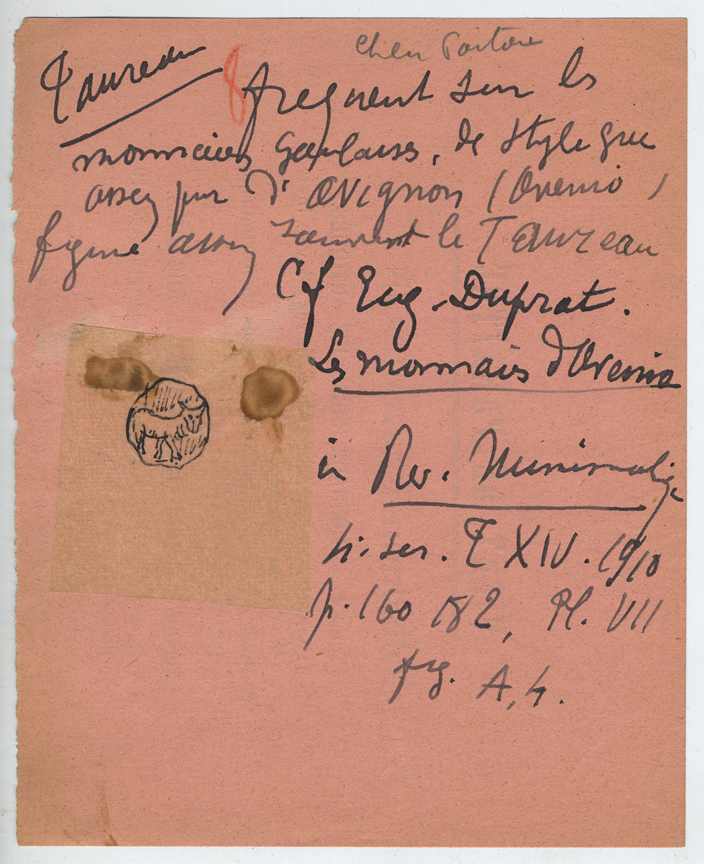 Taureau
fréquent sur les
monnaies Gauloises, de style grec
assez pur d'AVIGNON (Avenio)
figure assez souvent le TAUREAU
Cf Eug. Duprat.
Les monnaies d'Avenio
in Rev. Numismatiq
4e ser. T XIV. 1910
p. 160 182, Pl. VII
fig. A, 4.